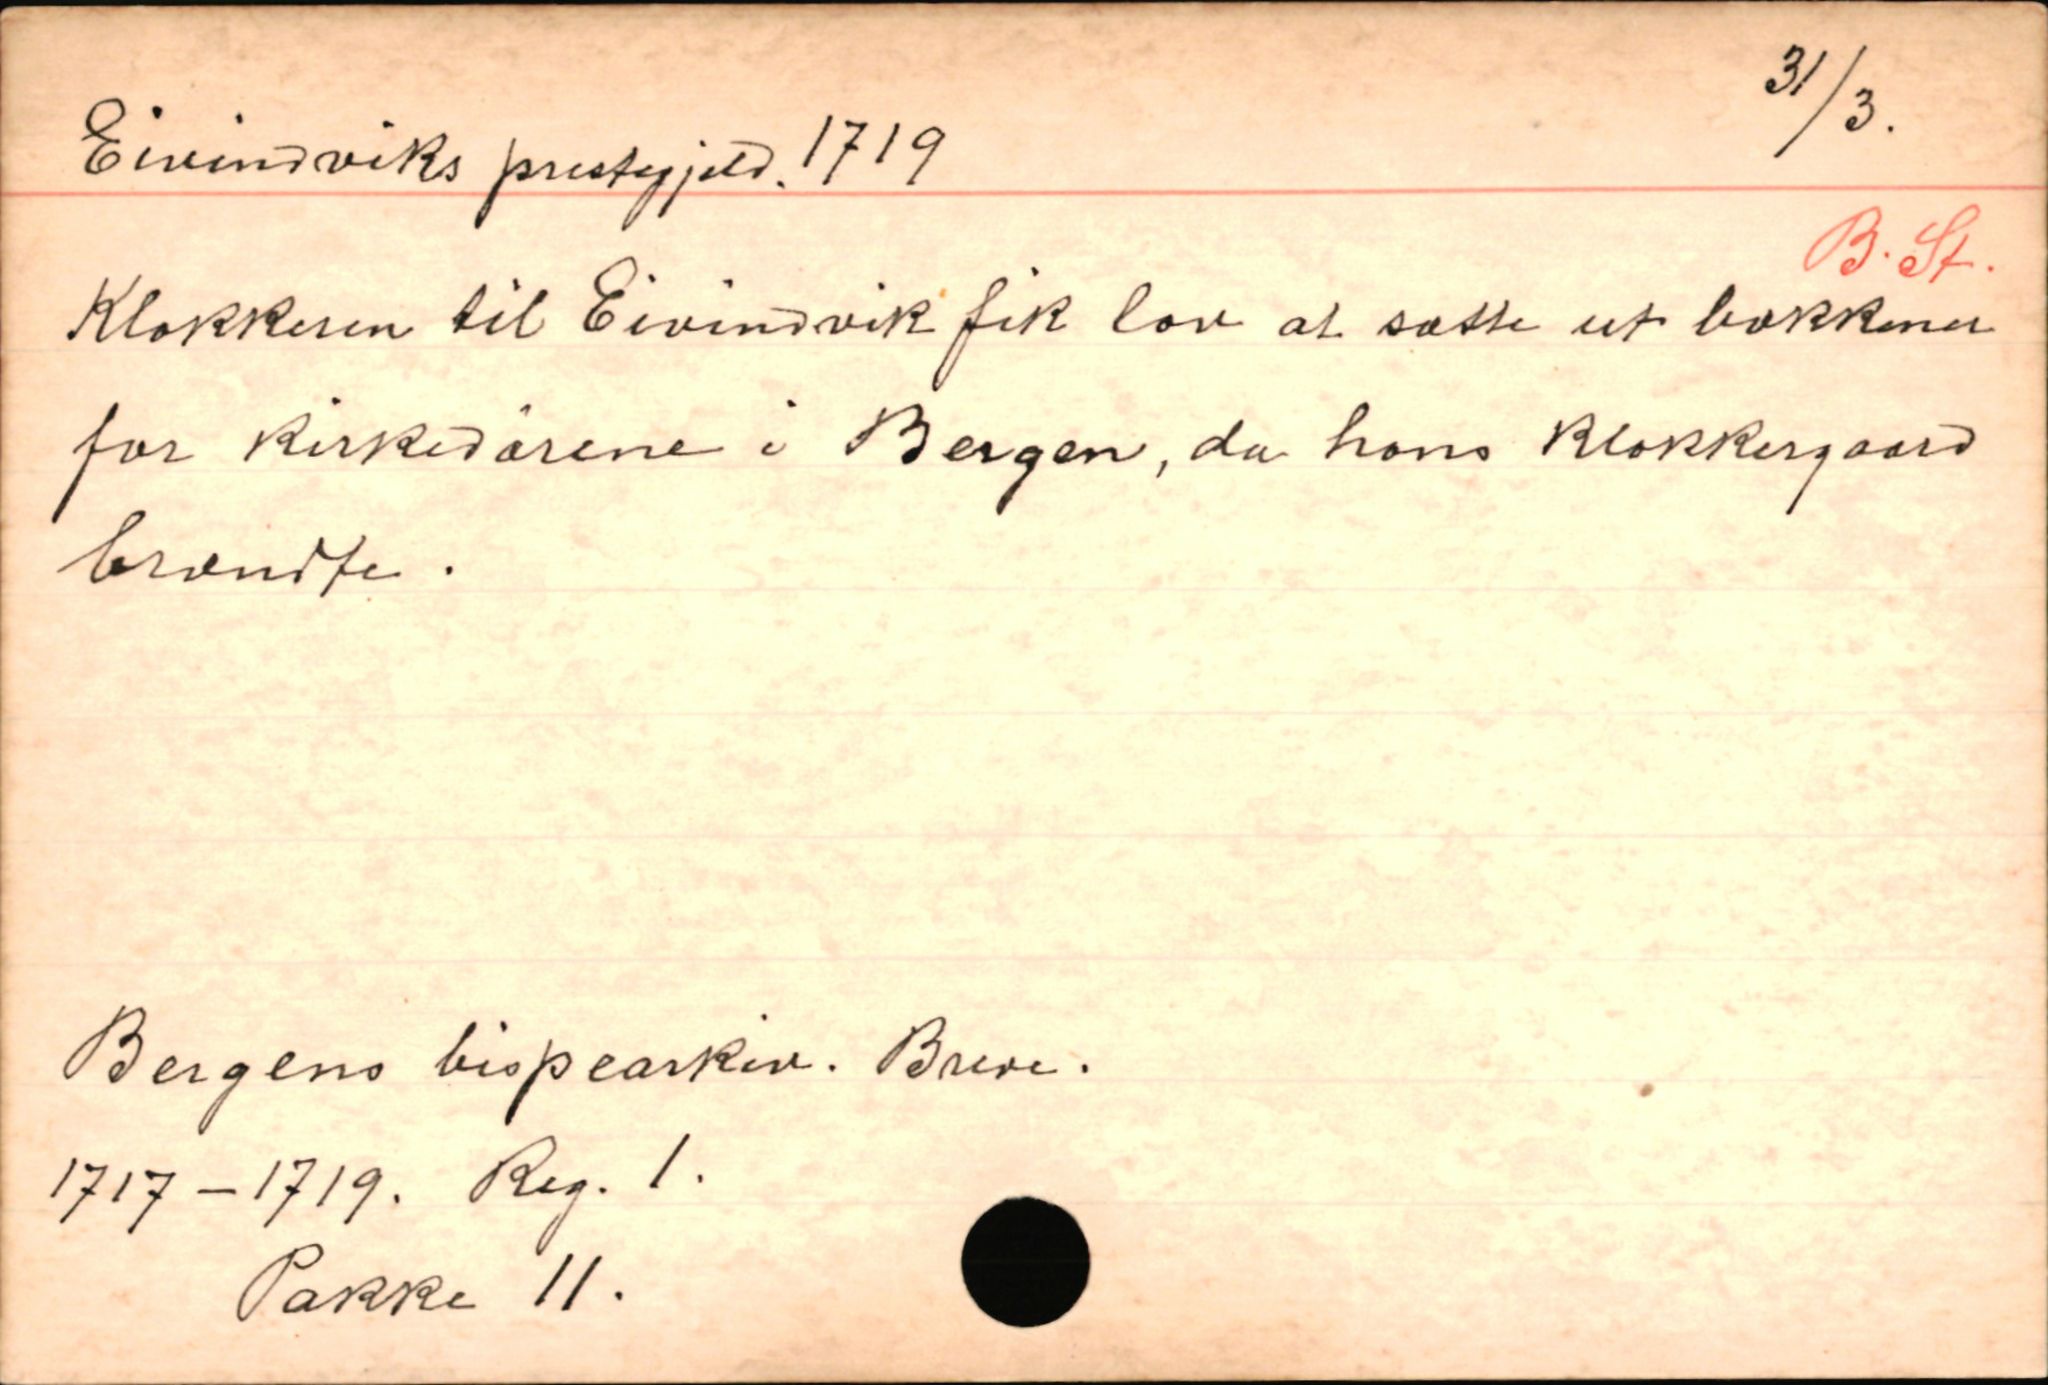 Eivindviks prestegjeld. 1719 31/3.
B. St.
Klokkeren til Eivindvik fik lov at sætte ut bækkener
for kirkedørene i Bergen, da hans klokkergaard
brændte.
Bergens bispearkiv. Breve.
1717-1719. Reg. 1.
Pakke 11.